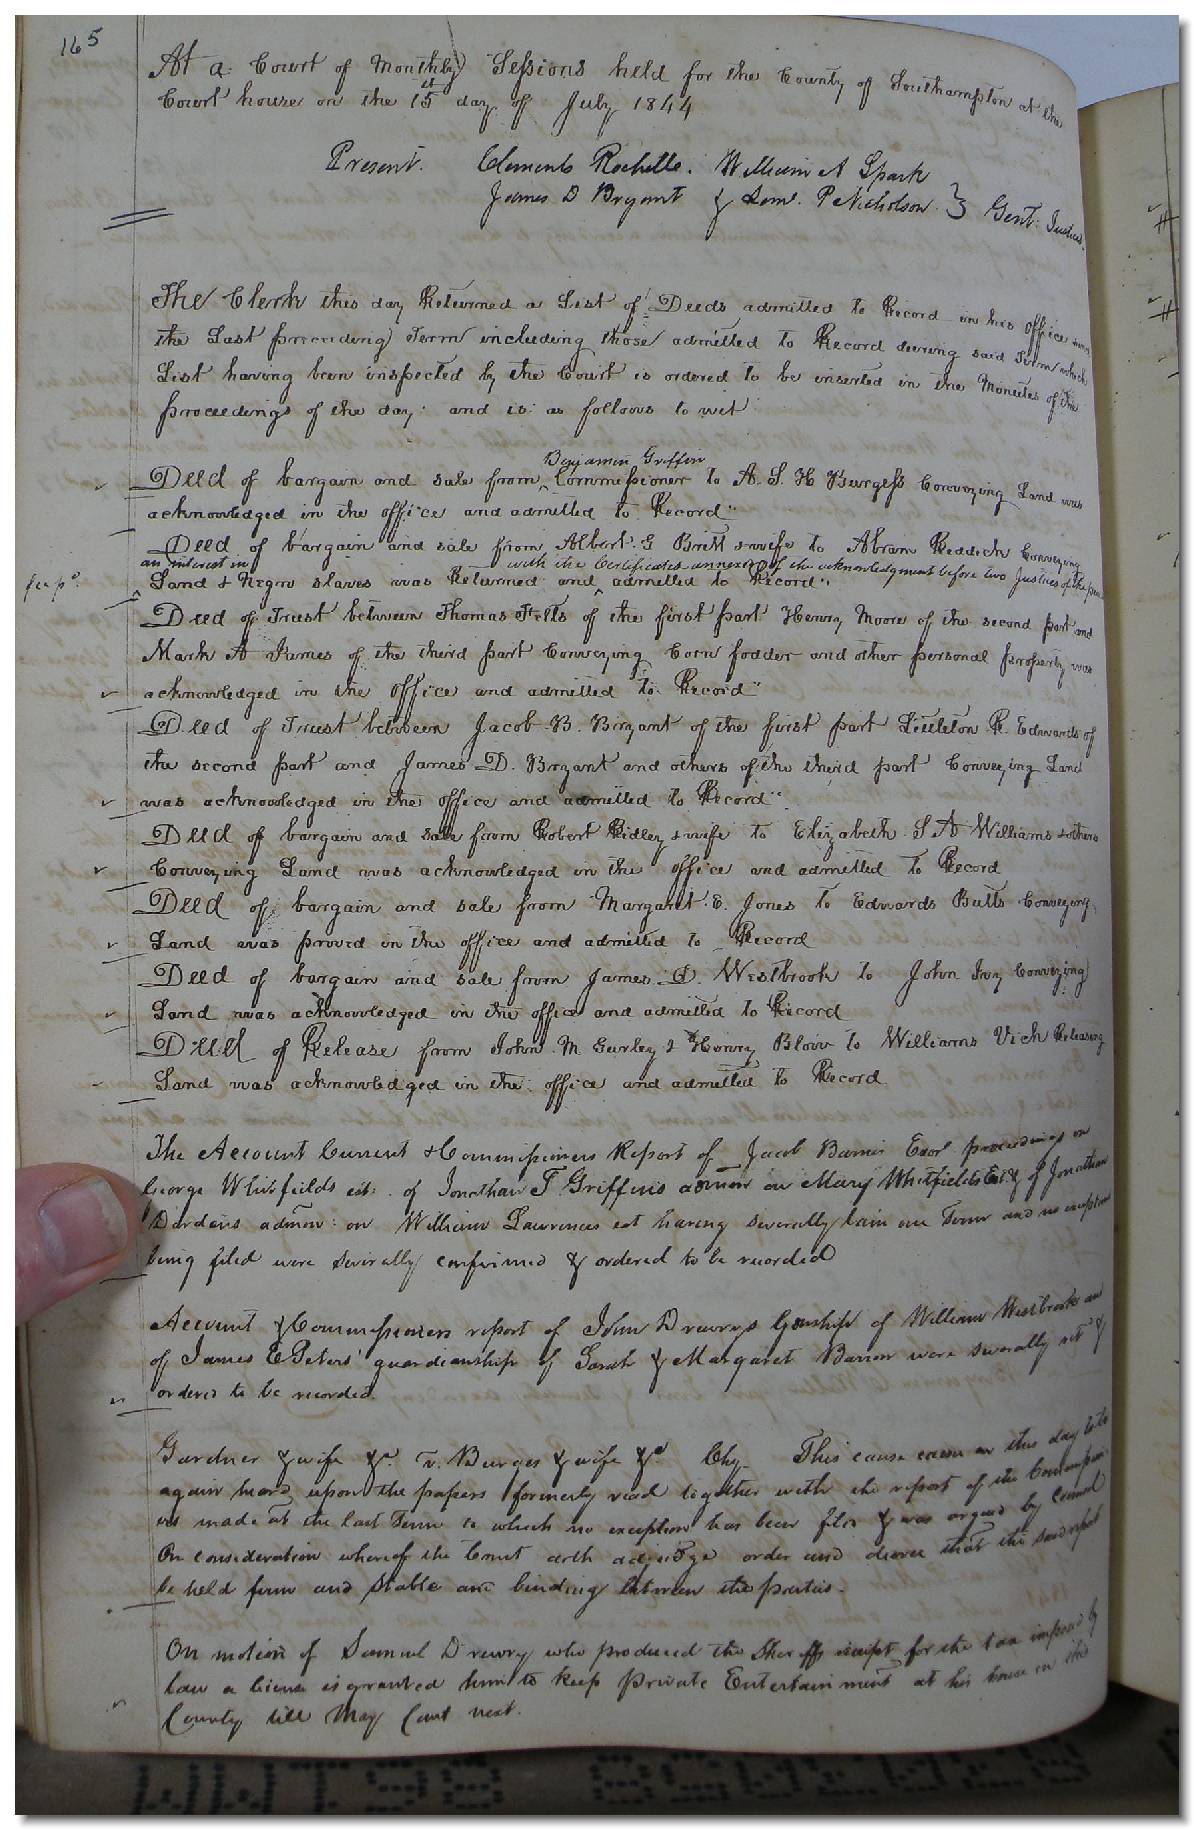 165
At a Court of Monthly Sessions held for the County of Southampton at the
Court house on the 15th day of July 1844
Present. Clements Rochelle. William A Spark
James D Bryant & Saml. P Nicholson } Gent: Justices.
The Clerk this day Returned a List of Deeds admitted to Record in his office since
the Last preceeding Term including those admitted to Record during said Term which
List having been inspected by the Court is ordered to be inserted in the Monutes of the
proceedings of the day and is as follows to wit
Benjamin Griffin
Deed of bargain and sale from ^ Commissioner to A. S. H Burgess Conveying Land was
acknowledged in the office and admitted to Record"
Deed of bargain and sale from Albert. G Britt & wife to Abram Reddick Conveying
an interest in with the Certificates annexed of the acknowledgment before two Justices of the peace
^ Land & Negro slaves was Returned and ^ admitted to Record"
Deed of Trust between Thomas Felts of the first part Henry Moore of the second part and
Mark A James of the third part Conveying Corn fodder and other personal property was
acknowledged in the office and admitted to Record"
Deed of Trust between Jacob B. Bryant of the first part Littleton R. Edwards of
the second part and James D. Bryant and others of the third part Conveying Land
was acknowledged in the office and admitted to Record"
Deed of bargain and sale from Robert Ridley & wife to Elizabeth S A Williams & others
Conveying Land was acknowledged in the office and admitted to Record
Deed of bargain and sale from Margaret E. Jones to Edwards Butts Conveying
Land was proved in the office and admitted to Record
Deed of bargain and sale from James D. Westbrook to John Ivy Conveying
Land was acknowledged in the office and admitted to Record
Deed of Release from John M Gurley & Henry Blow to Williams Vick Releasing
Land was acknowledged in the office and admitted to Record
The Account Current & Commissioners Report of Jacob Barnes Exor proceedings on
George Whitfields est: of Jonathan T Griffins admon on Mary Whitfields Est & of Jonathan
Dardens admon: on William Lawrences est having severally lain one Term and no exceptions
being filed were severally confirmed & ordered to be recorded
Account & Commissioners report of John Drewrys Gonship of William Westbrook and
of James E Peters' guardianship of Sarah & Margaret Barrow were severally retd &
ordered to be recorded.
Gardner & wife &c. v. Burges & wife &c Chy. This cause came on this day to be
again heard upon the papers formerly read together with the report of the Commission
ers made at the last Term to which no exception has been filed & was argued by Counsel
On consideration whereof the Court doth adjudge order and decree that the said report
be held firm and stable and binding between the parties.
On motion of Samuel Drewry who produced the Sheriffs receipt for the tax imposed by
law a license is granted him to keep Private Entertainment at his house in this
County till May Court next.